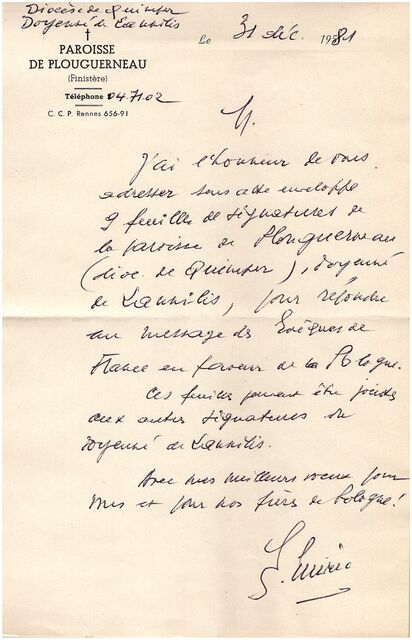 Diocèse de Quimper
Doyenné de Lannilis
PAROISSE
DE PLOUGUERNEAU
(Finistère)
Téléphone 04.71.02
C. C. P. Rennes 656-91
Le 31 déc. 1981
M.
J'ai l'honneur de vous
adresser sous cette enveloppe
9 feuilles de signatures de
la paroisse de Plouguerneau
(dioc. de Quimper), doyenné
de Lannilis, pour répondre
au message des Evêques de
France en faveur de la Pologne.
Ces feuilles peuvent être jointes
aux autres signatures du
doyenné de Lannilis.
Avec mes meilleurs voeux pour
vous et pour nos frères de Pologne!